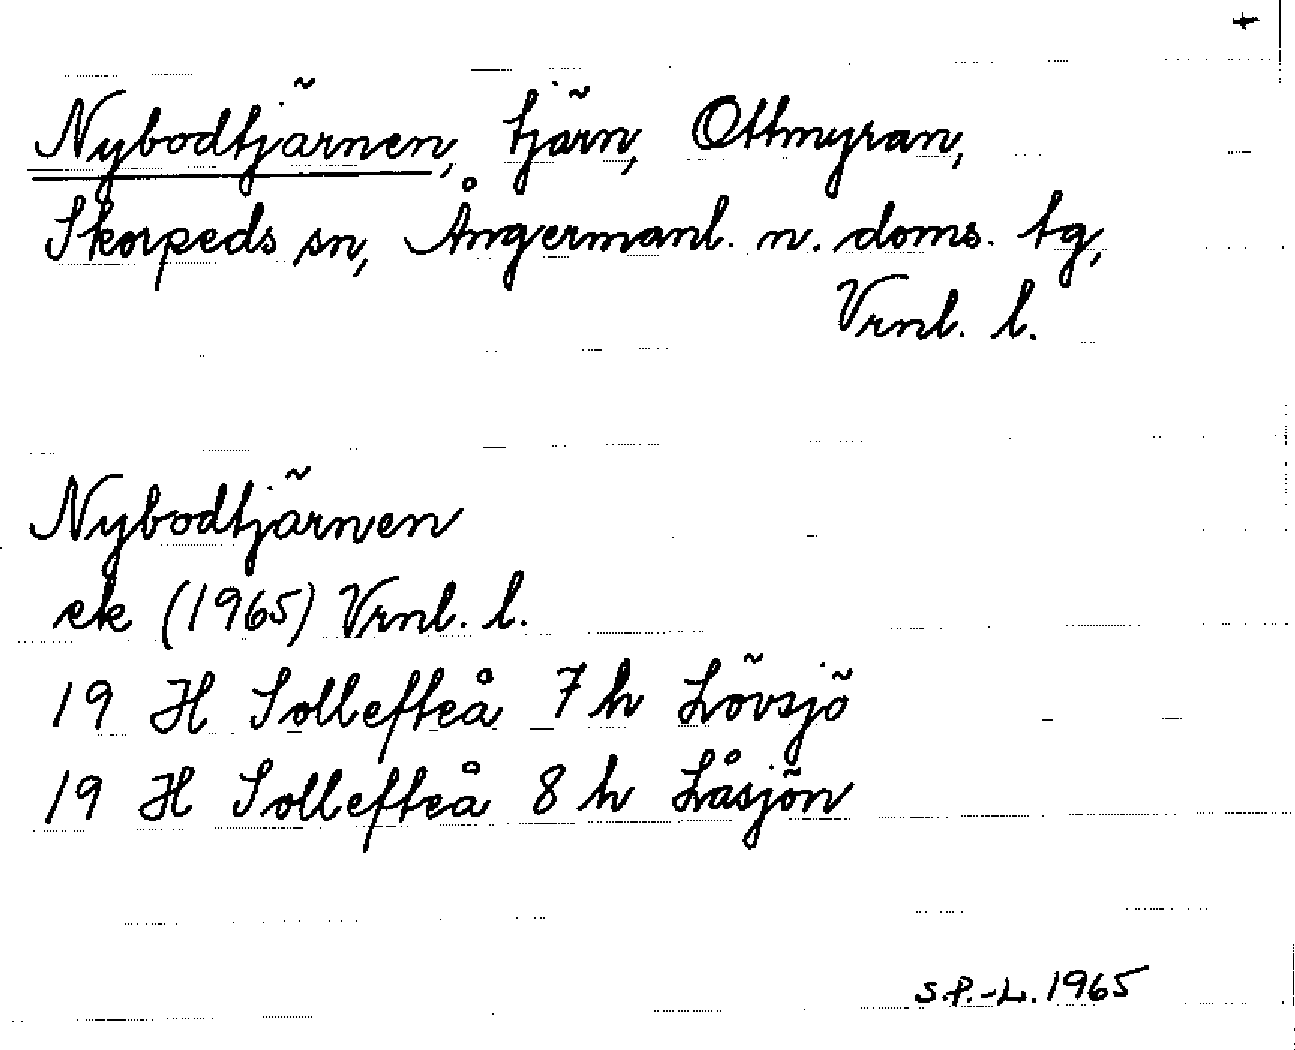 +
Nybodtjärnen, tjärn, Ottmyran,
Skorpeds sn, Ångermanl. n. doms. tg,
Vrnl. l.
Nybodtjärnen
ek (1965) Vrnl. l.
19 H Sollefteå 7 h Lövsjö
19 H Sollefteå 8 h Låsjön
S.P.-L. 1965